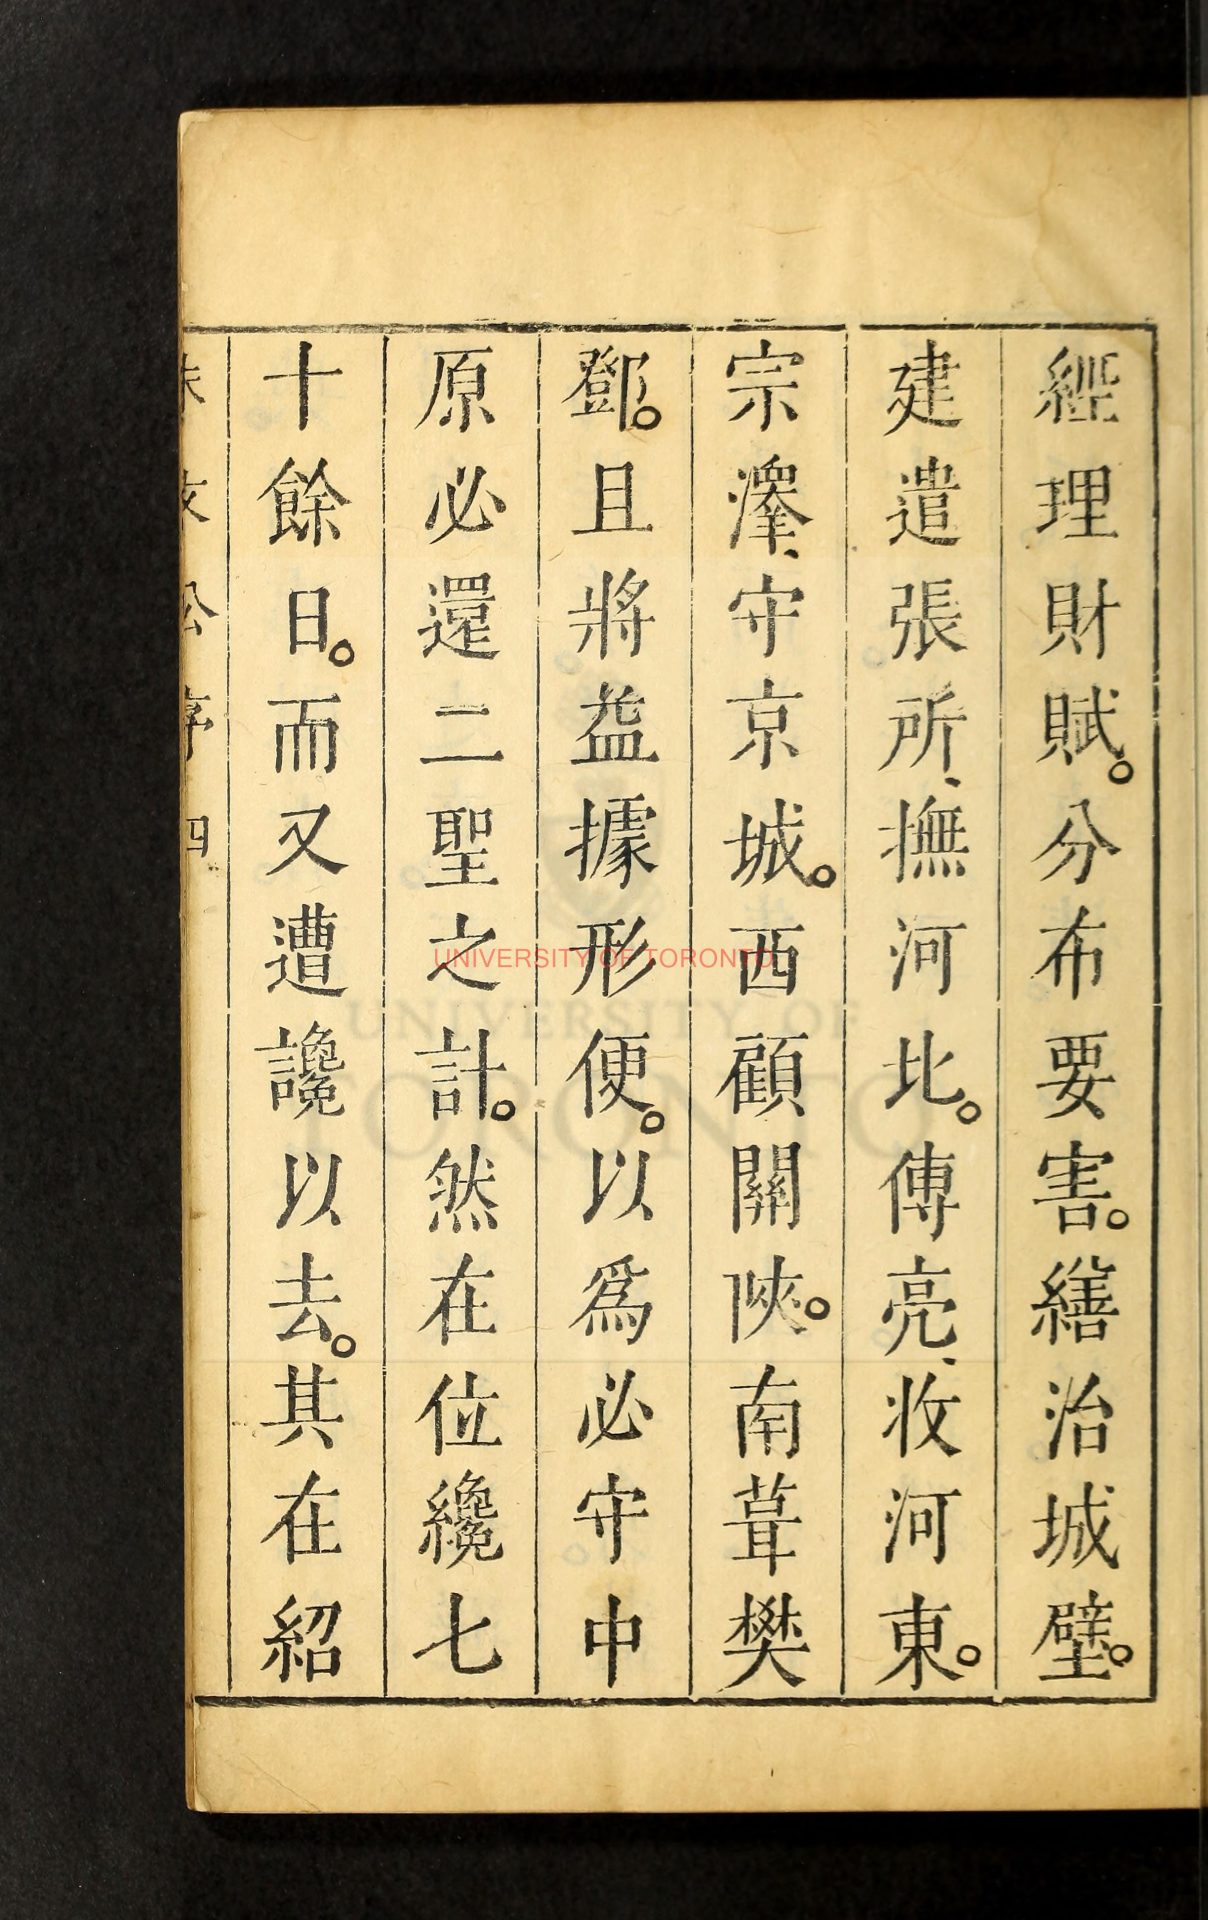 經理財賦。分布要害。繕治城壁。
建遣張所、撫河北。傅亮、收河東。
宗澤、守京城。西顧關陜。南葺樊
鄧。且將益據形便。以爲必守中
原必還二聖之計。然在位纔七
十餘日。而又遭讒以去。其在紹
朱文公序 四
UNIVERSITY OF TORONTO
UNIVERSITY OF
TORONTO